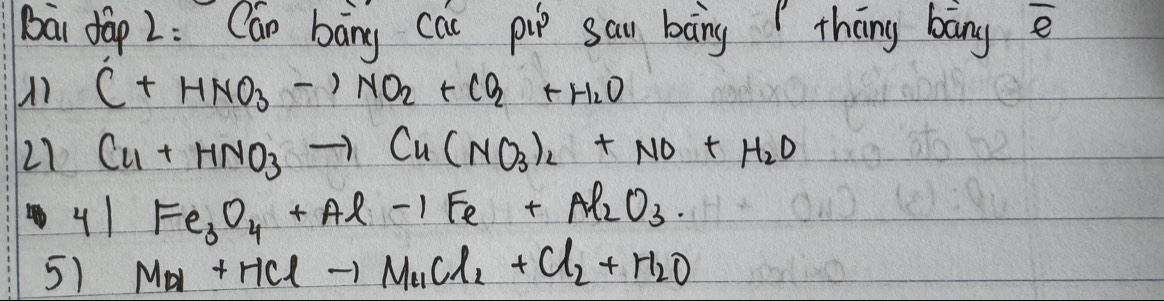 Bài tập 2: Cân bằng các pứ sau bằng thăng bằng e
1) C + HNO3 → NO2 + CO2 + H2O
2) Cu + HNO3 → Cu(NO3)2 + NO + H2O
4) Fe3O4 + Al → Fe + Al2O3.
5) + HCl → MnCl2 + Cl2 + H2O